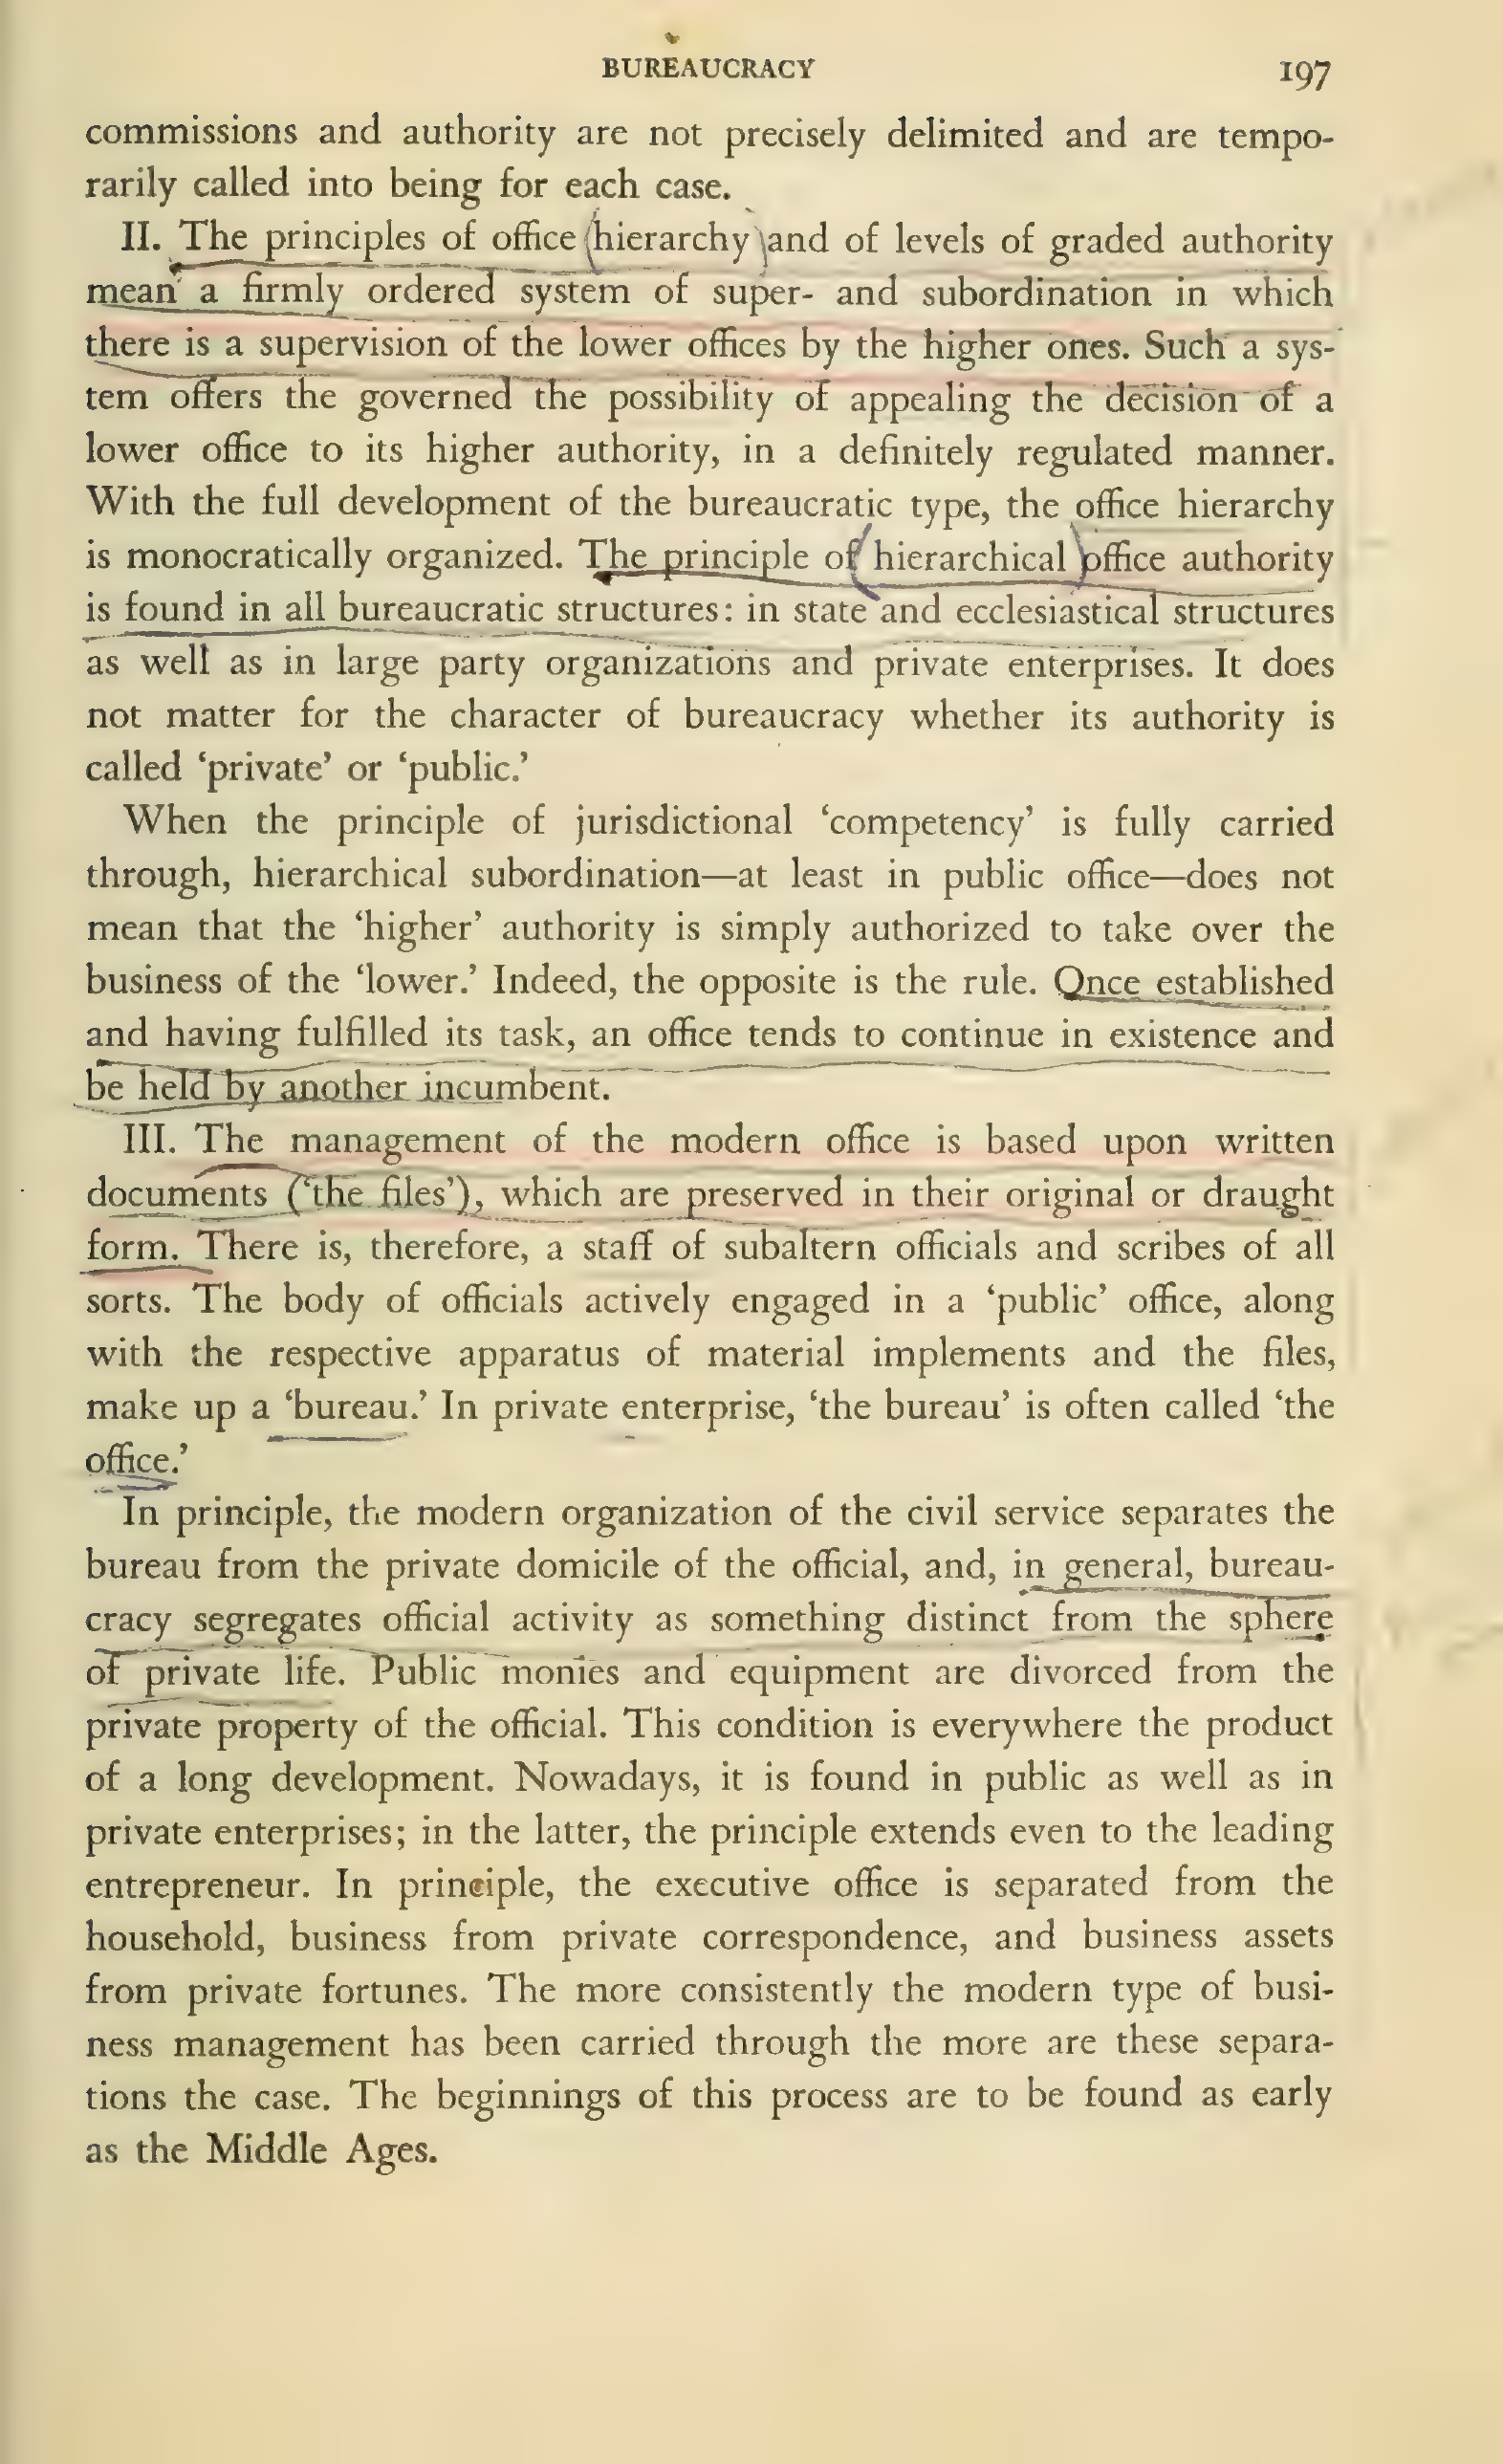 BUREAUCRACY 197
commissions and authority are not precisely delimited and are tempo-
rarily called into being for each case.
II. The principles of office hierarchy and of levels of graded authority
mean a firmly ordered system of super- and subordination in which
there is a supervision of the lower offices by the higher ones. Such a sys-
tem offers the governed the possibility of appealing the decision of a
lower office to its higher authority, in a definitely regulated manner.
With the full development of the bureaucratic type, the office hierarchy
is monocratically organized. The principle of hierarchical office authority
is found in all bureaucratic structures: in state and ecclesiastical structures
as well as in large party organizations and private enterprises. It does
not matter for the character of bureaucracy whether its authority is
called ‘private’ or ‘public.’
When the principle of jurisdictional ‘competency’ is fully carried
through, hierarchical subordination—at least in public office—does not
mean that the ‘higher’ authority is simply authorized to take over the
business of the ‘lower.’ Indeed, the opposite is the rule. Once established
and having fulfilled its task, an office tends to continue in existence and
be held by another incumbent.
III. The management of the modern office is based upon written
documents (‘the files’), which are preserved in their original or draught
form. There is, therefore, a staff of subaltern officials and scribes of all
sorts. The body of officials actively engaged in a ‘public’ office, along
with the respective apparatus of material implements and the files,
make up a ‘bureau.’ In private enterprise, ‘the bureau’ is often called ‘the
office.’
In principle, the modern organization of the civil service separates the
bureau from the private domicile of the official, and, in general, bureau-
cracy segregates official activity as something distinct from the sphere
of private life. Public monies and equipment are divorced from the
private property of the official. This condition is everywhere the product
of a long development. Nowadays, it is found in public as well as in
private enterprises; in the latter, the principle extends even to the leading
entrepreneur. In principle, the executive office is separated from the
household, business from private correspondence, and business assets
from private fortunes. The more consistently the modern type of busi-
ness management has been carried through the more are these separa-
tions the case. The beginnings of this process are to be found as early
as the Middle Ages.